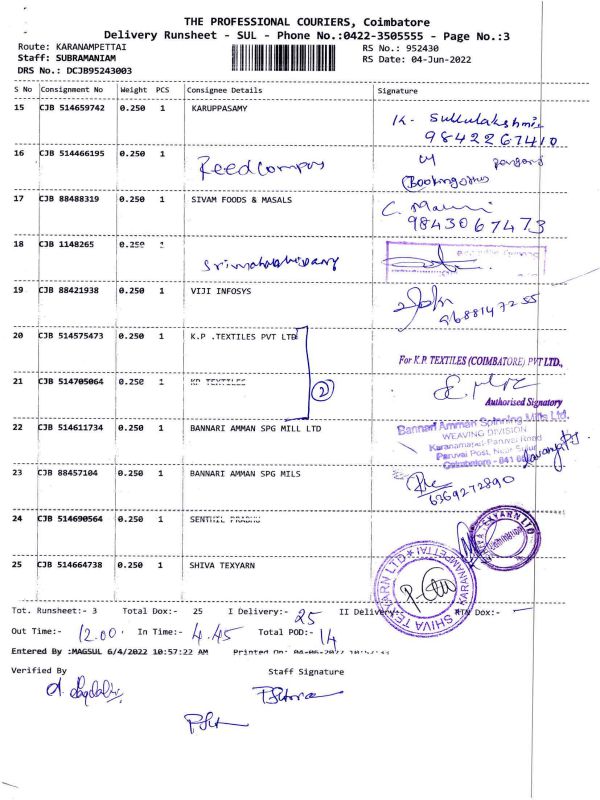 THE PROFESSIONAL COURIERS, Coimbatore
Delivery Runsheet - SUL - Phone No.:0422-3505555 - Page No.:3
Route: KARANAMPETTAI RS No.: 952430
Staff: SUBRAMANIAM RS Date: 04-Jun-2022
DRS No.: DCJB95243003
S No Consignment No Weight PCS Consignee Details Signature
15 CJB 514659742 0.250 1 KARUPPASAMY
9842267410
16 CJB 514466195 0.250 1 Reedcompus
17 CJB 88488319 0.250 1 SIVAM FOODS & MASALS C. Mauni
9843067473
18 CJB 1148265 0.250 1
19 CJB 88421938 0.250 1 VIJI INFOSYS
9688147255
20 CJB 514575473 0.250 1 K.P .TEXTILES PVT LTD
For K.P. TEXTILES (COIMBATORE) PVT LTD.,
21 CJB 514705064 0.250 1 KP TEXTILES 2
Authorised Signatory
22 CJB 514611734 0.250 1 BANNARI AMMAN SPG MILL LTD
Bannari Amman Spinning Mills Ltd.
WEAVING DIVISION
Karanampet-Paruvai Road
Paruvai Post, Near Sulur
Coimbatore - 641
23 CJB 88457104 0.250 1 BANNARI AMMAN SPG MILS
6369272890
24 CJB 514690564 0.250 1 SENTHIL PRABHU
25 CJB 514664738 0.250 1 SHIVA TEXYARN
SHIVA TEXYARN LTD KARANAMPETTAI
Tot. Runsheet:- 3 Total Dox:- 25 I Delivery:- 25 II Delivery:- RTN Dox:- -
Out Time:- 12.00 In Time:- 4.45 Total POD:- 14
Entered By :MAGSUL 6/4/2022 10:57:22 AM Printed On: 04-06-2022 10:57:33
Verified By Staff Signature